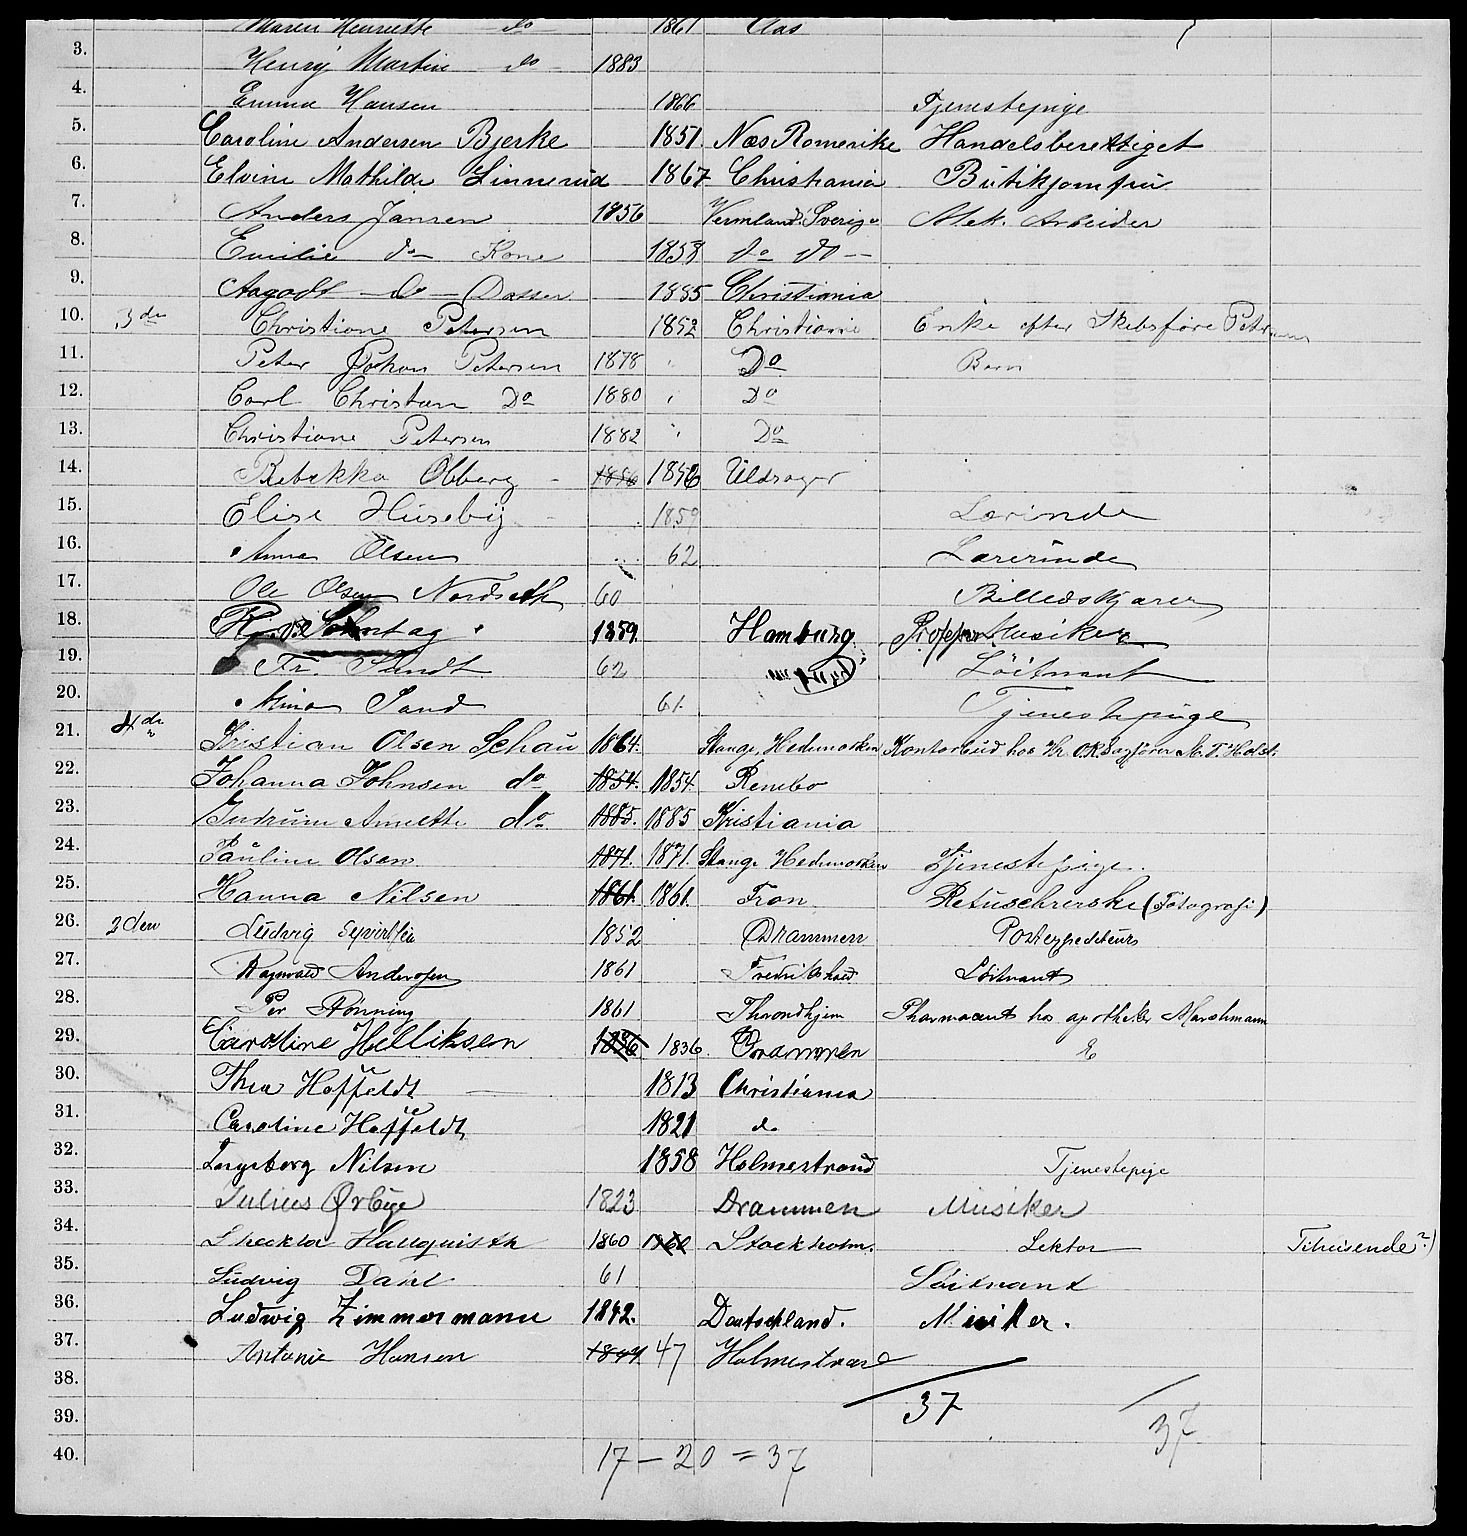 Maren Henriette do 1861 Aas
3. Henry Martin do 1883
4. Emma Hansen 1866 Tjenestepige
5. Caroline Andersen Bjerke 1851. Næs Romerike Handelsberettiget
6. Elvine Mathilde Linnerud 1867 Christiania Butikjomfru
7. Anders Jansen 1856 Vermland Sverige Mek. Arbeider
8. Emilie do Kone 1858 do do
9. Aagodt do Datter 1885 Christiania
10. 3de Christiane Petersen 1852 Christiania Enke efter Skibsføre Petersen
11. Peter Johan Petersen 1878 Do Barn
12. Carl Christian Do 1880 Do
13. Christiane Petersen 1882 Do
14. Rebekka Obberg 1856 1856 Uldsager
15. Elise Huseby 1859 Lærinde
16. Anna Olsen 62 Lærerinde
17. Ole Olsen Nordseth 60 Billedskjærer
18. Sonntag 1859. Hamburg. Musiker
19. Fr. Sundt 62 Löitnant
20. Mina Sand 61. Tjenestepige
21. 4de Kristian Olsen Schau 1864. Stange, Hedemarken Kontorbud hos Hr. O.R.Sagfører M. T. Holst.
22. Johanna Johnsen do 1854. 1854 Renebo
23. Gudrun Annette do 1885. 1885 Kristiania
24. Pauline Olsen 1871. 1871. Stange Hedemarken Tjenestepige.
25. Hanna Nilsen 1861. 1861. Fron Retuscherske (Fotografi)
26. 2den Ludvig Syvertsen 1852 Drammen Postexpediteur
27. Ragnvald Andersen 1861 Fredrikshald Löitnant
28. Per Rønning 1861 Throndhjem Pharmaceut hos apotheker Marshmann
29. Caroline Helliksen 1836 1836. Drammen E
30. Thea Hoffeldt 1813 Christiania
31. Caroline Hoffeldt 1821 do
32. Ingeborg Nilsen 1858 Holmestrand Tjenestepige
33. Julius Ørbye 1823 Drammen Musiker
34. Hallquisth 1860 1860 Stockholm. Lektor Tilreisende?)
35. Ludvig Dahl 61 Löitnant
36. Ludwig Zimmermann 1842. Deutschland. Musiker.
37. Antonie Hansen 1847 47 Holmestrand
38. 37
39. 37
40. 17 – 20 = 37